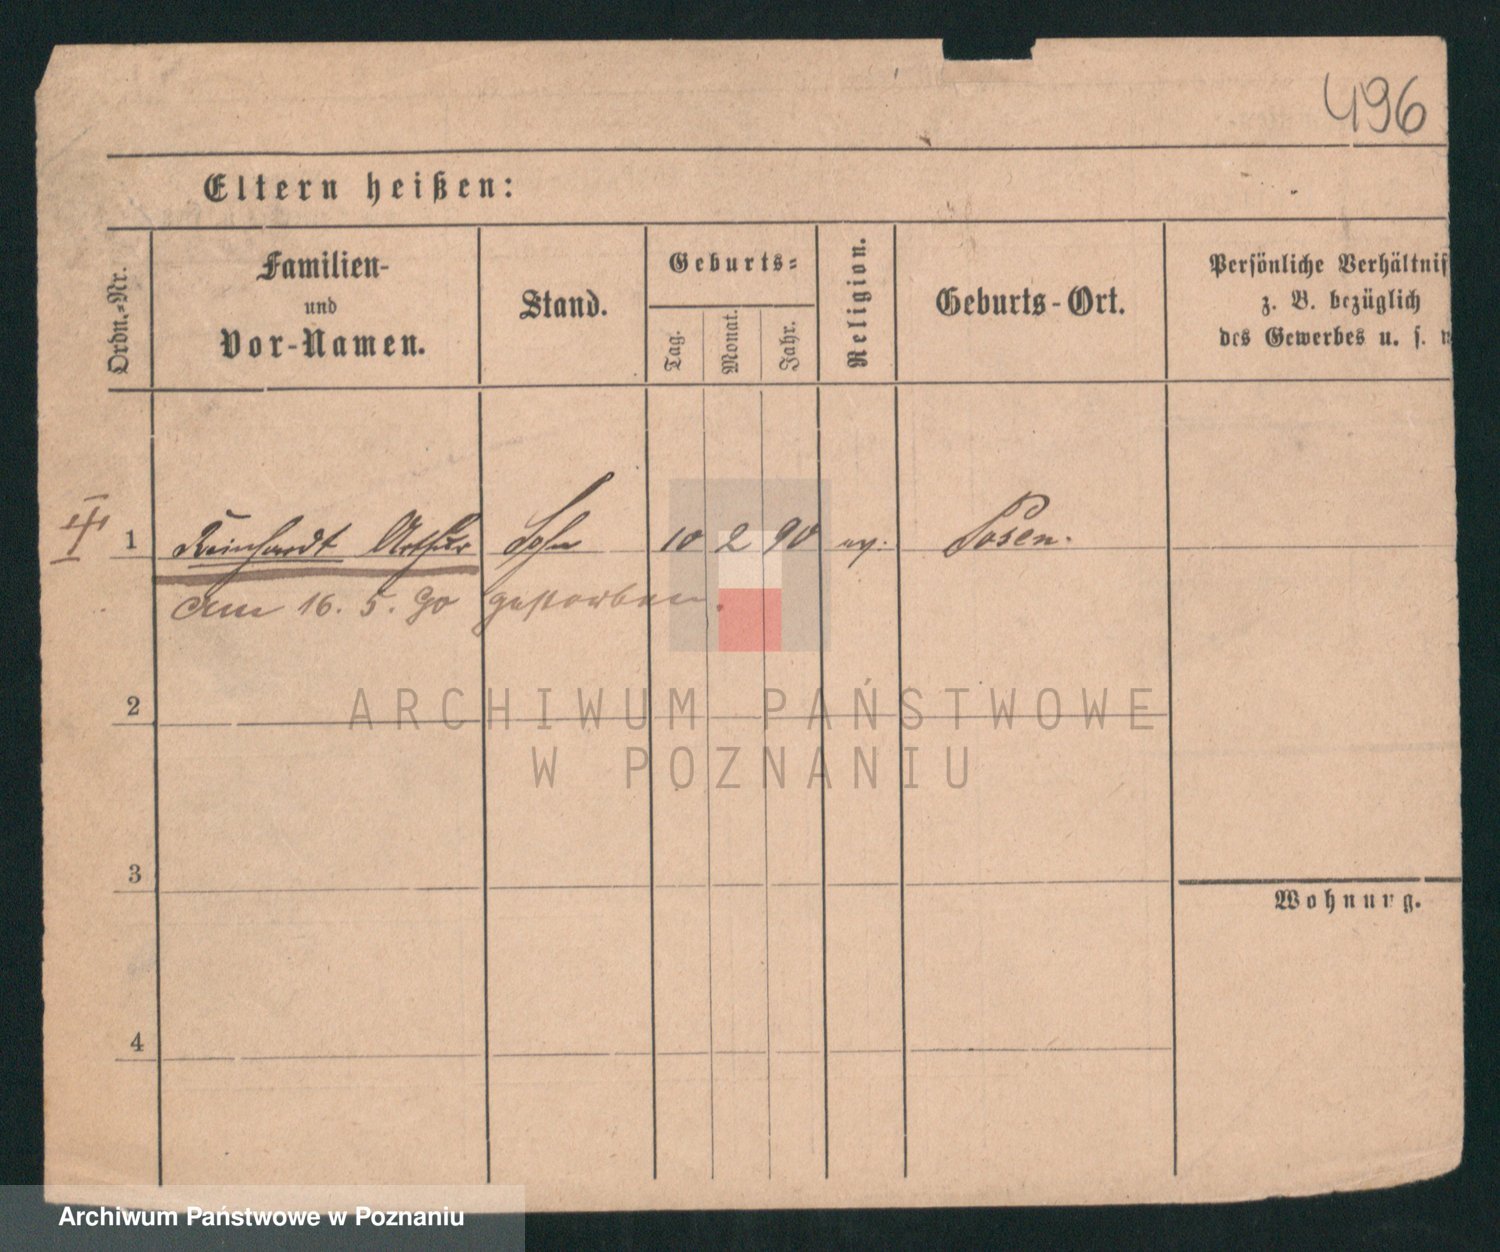 496
Eltern heißen:
Ordn.-Nr.
Familien-
und
Vor-Namen.
Stand.
Geburts-
Tag.
Monat.
Jahr.
Religion.
Geburts-Ort.
Persönliche Verhältnis
z. B. bezüglich
des Gewerbes u. s. w
1 Reinhardt Arthur Sohn 10 2 90 ev. Posen.
am 16. 5. 90 gestorben.
2
3
Wohnung.
4
ARCHIWUM PAŃSTWOWE
W POZNANIU
Archiwum Państwowe w Poznaniu